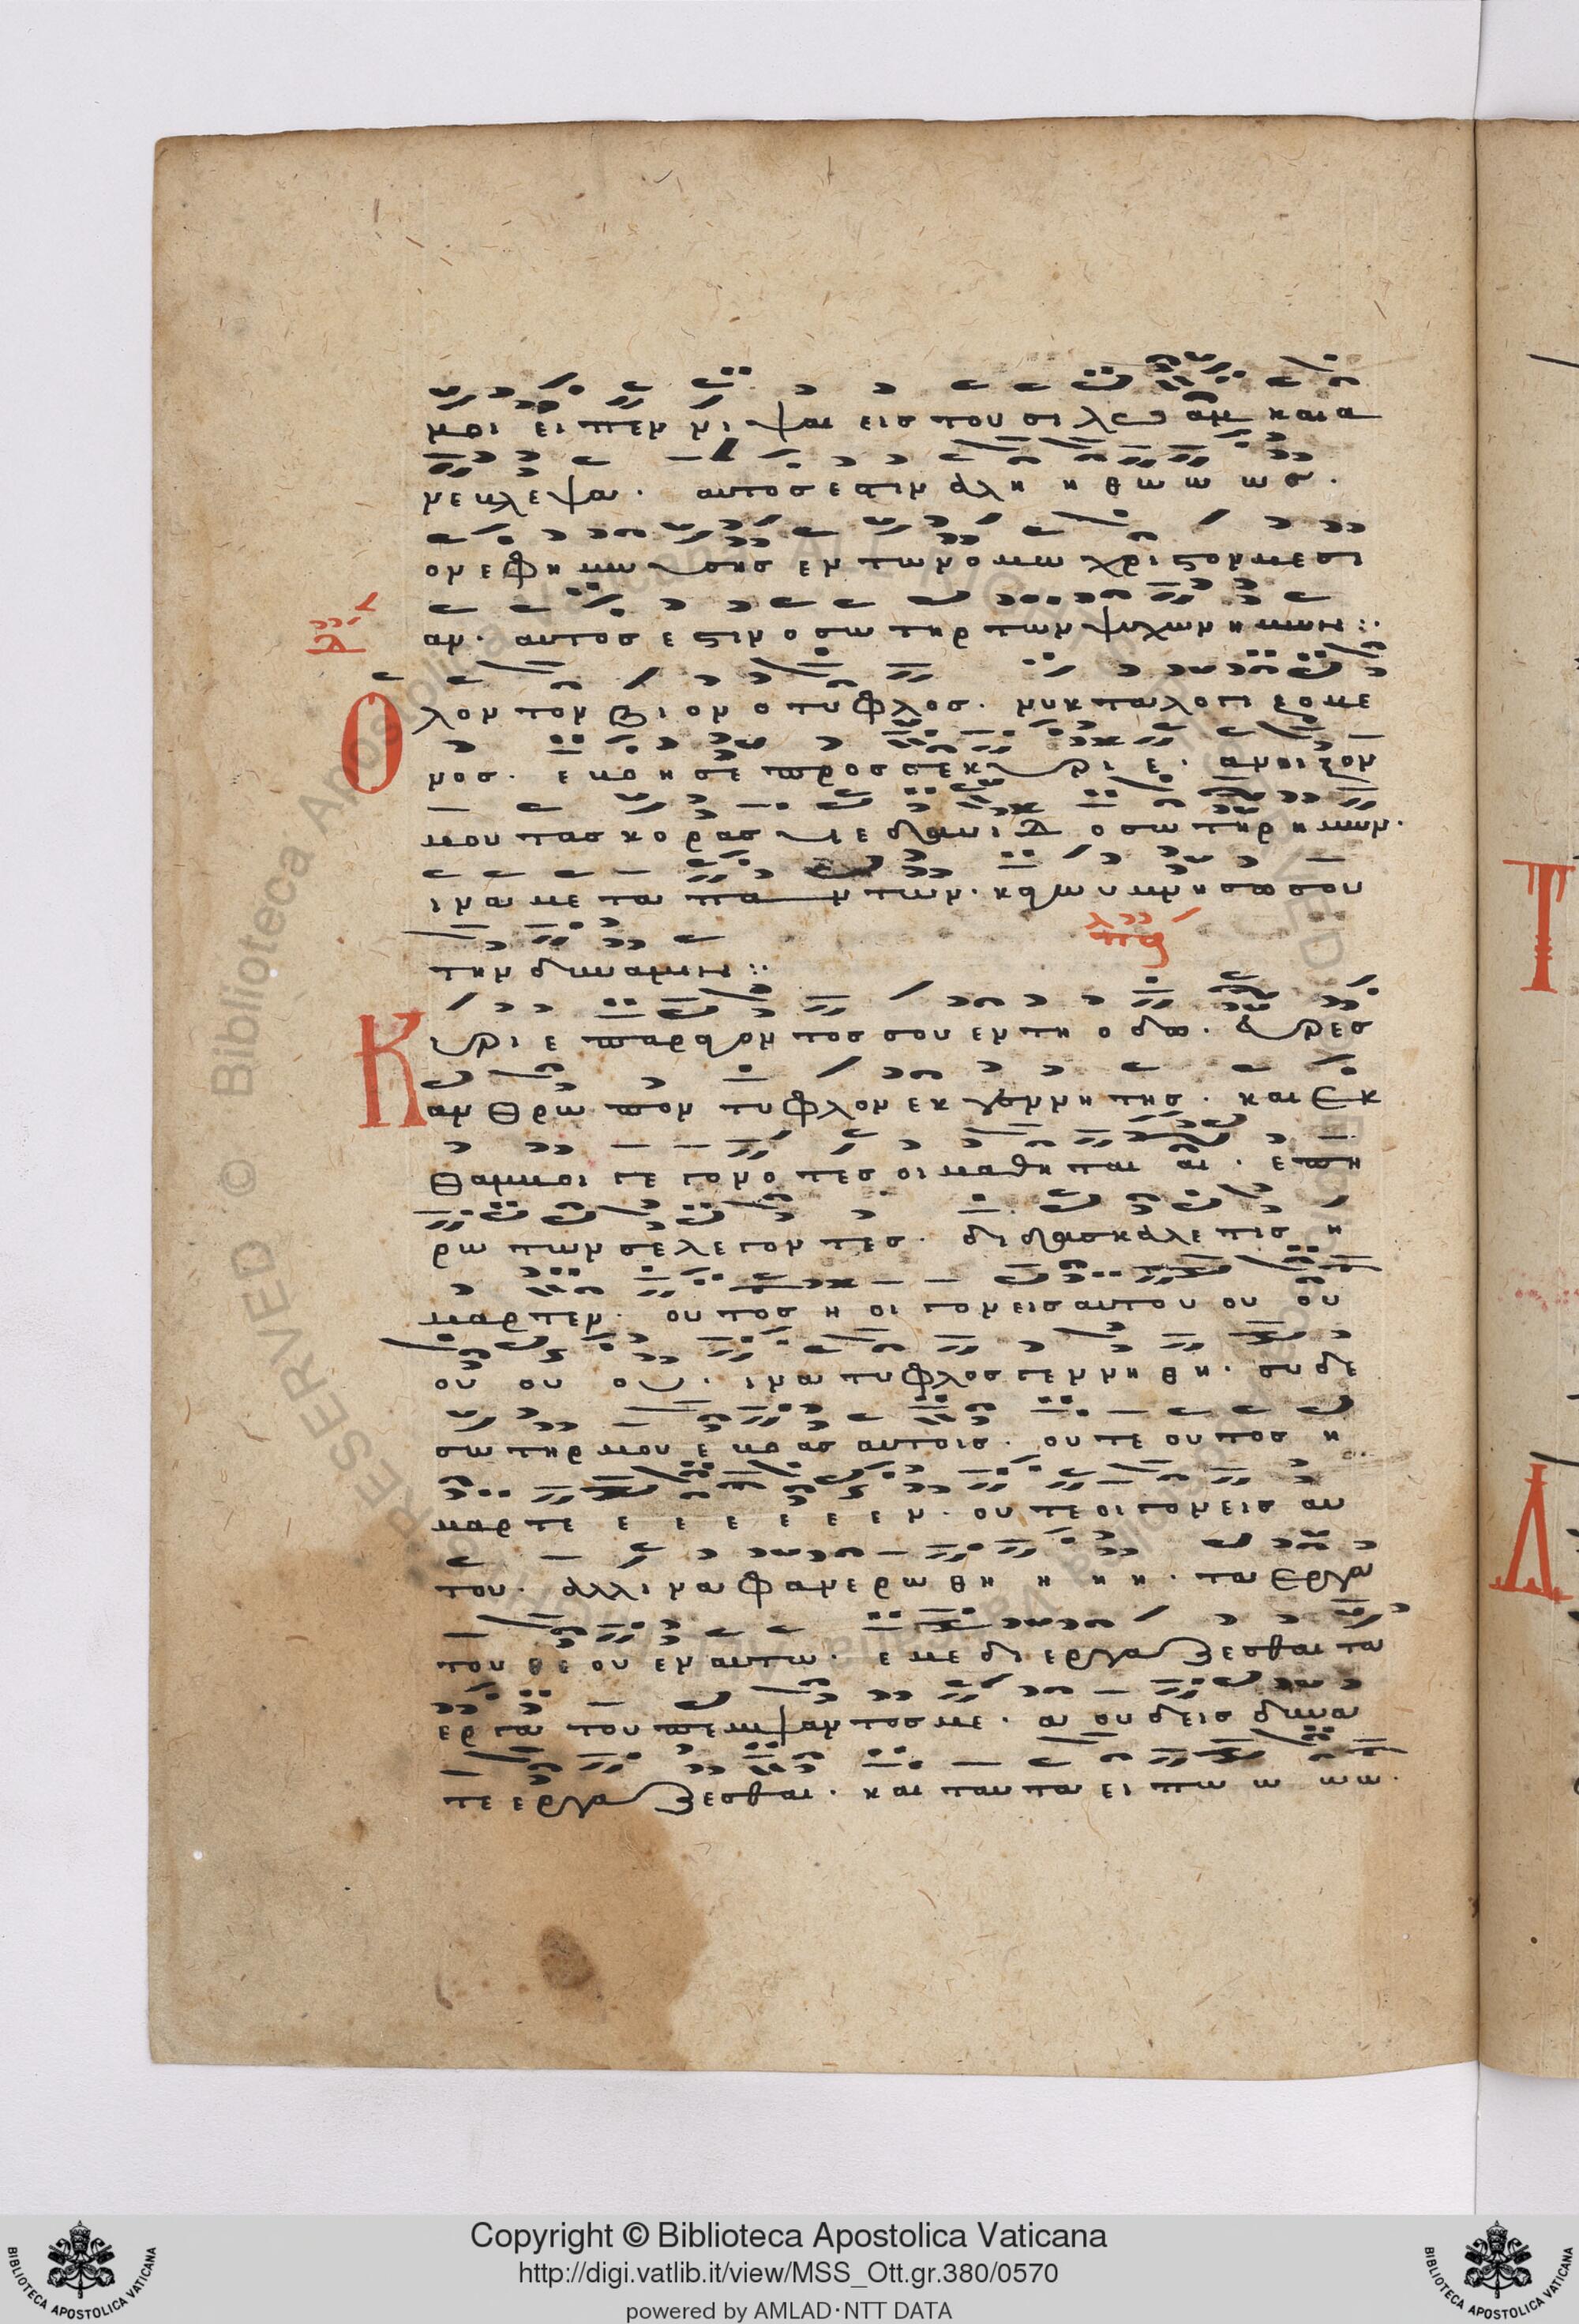 μοι ειπεν νι ψαι εις του σι λω αμ και α
νε βλε ψα · αυτος εστιν αλη η θω ω ω ς ·
ον εφη μω υσης εν τω νομω χριστον μεσι
αν · αυτος εστιν ο σω τηρ των ψυχων ημων :·
Ο λον τον βιον ο τυφλος · νυκτα λογι ζομε
νος · εβο η σε προς σε κυρι ε · ανοιξον
μου τας κορας υιε δαυιδ ο σω τηρ ημων ·
ινα με τα πα ντων · καγω υμνησω σου
την δυναμιν :·
Κ υρι ε παραγον τος σου εν τη οδω · ευρες
αν θρω πον τυφλον εκ γεννη της · και εκ
θαμβοι γε γονο τες οι μαθη ται αι · επη
ρω των σε λεγον τες · διδασκαλε τις η
μαρτεν · ουτος η οι γονεις αυτου ου ου
ου ου ου · ινα τυφλος γεννη θη · συ δε
σωτηρ μου εβοας αυτοις · ουτε ουτος η
μαρτε ε ε ε ε ε εν · ουτε οι γονεις αυ
του · αλλ ινα φανερωθη η η η · τα εργα
του θεου εν αυτω · εμε δι εργαζεσθαι τα
εργα του πεμψαντος με · α ουδεις δυνα
τε εργαζεσθαι · και ταυτα ει πω ω ω ω ·
Copyright © Biblioteca Apostolica Vaticana
http://digi.vatlib.it/view/MSS_Ott.gr.380/0570
powered by AMLAD·NTT DATA